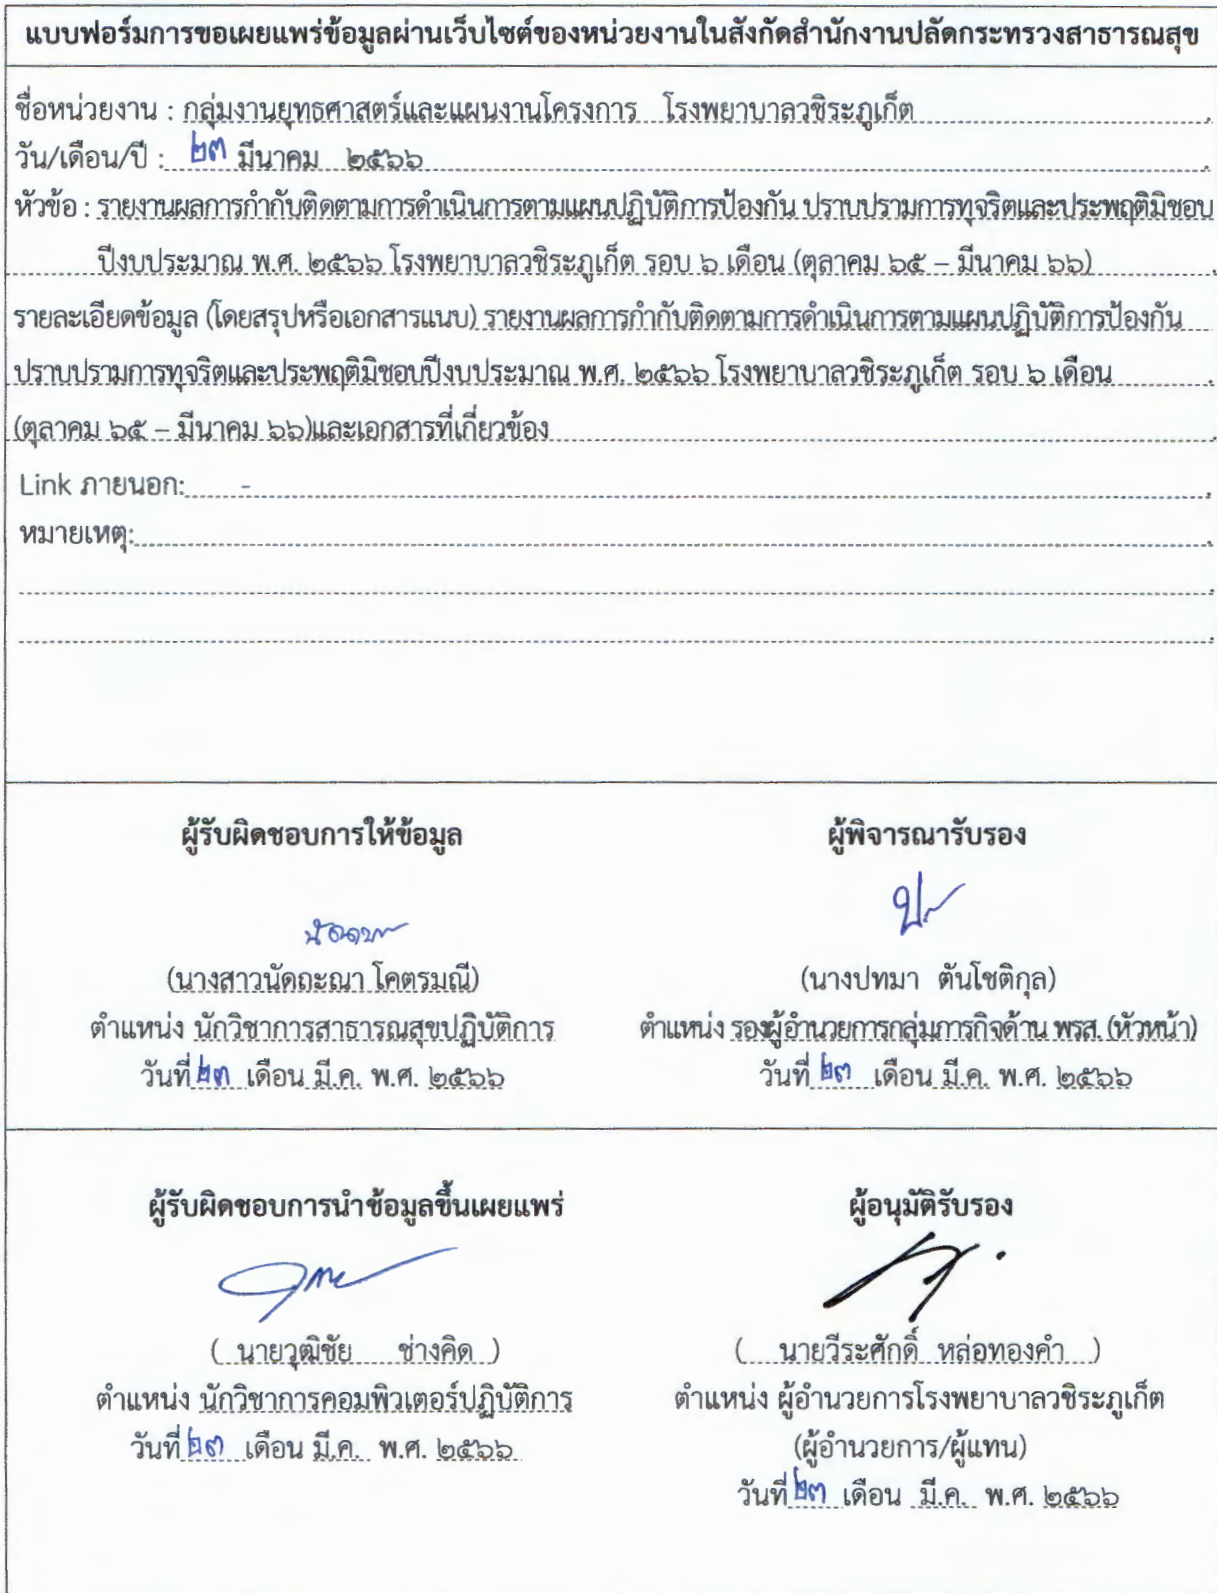 แบบฟอร์มการขอเผยแพร่ข้อมูลผ่านเว็บไซต์ของหน่วยงานในสังกัดสำนักงานปลัดกระทรวงสาธารณสุข
ชื่อหน่วยงาน : กลุ่มงานยุทธศาสตร์และแผนงานโครงการ โรงพยาบาลวชิระภูเก็ต
วัน/เดือน/ปี : ๒๓ มีนาคม ๒๕๖๖
หัวข้อ : รายงานผลการกำกับติดตามการดำเนินการตามแผนปฏิบัติการป้องกัน ปราบปรามการทุจริตและประพฤติมิชอบ
ปีงบประมาณ พ.ศ. ๒๕๖๖ โรงพยาบาลวชิระภูเก็ต รอบ ๖ เดือน (ตุลาคม ๖๕ – มีนาคม ๖๖)
รายละเอียดข้อมูล (โดยสรุปหรือเอกสารแนบ) รายงานผลการกำกับติดตามการดำเนินการตามแผนปฏิบัติการป้องกัน
ปราบปรามการทุจริตและประพฤติมิชอบปีงบประมาณ พ.ศ. ๒๕๖๖ โรงพยาบาลวชิระภูเก็ต รอบ ๖ เดือน
(ตุลาคม ๖๕ – มีนาคม ๖๖)และเอกสารที่เกี่ยวข้อง
Link ภายนอก: -
หมายเหตุ:
ผู้รับผิดชอบการให้ข้อมูล
(นางสาวนัดถะณา โคตรมณี)
ตำแหน่ง นักวิชาการสาธารณสุขปฏิบัติการ
วันที่ ๒๓ เดือน มี.ค. พ.ศ. ๒๕๖๖
ผู้พิจารณารับรอง
(นางปทมา ตันโชติกุล)
ตำแหน่ง รองผู้อำนวยการกลุ่มภารกิจด้าน พรส. (หัวหน้า)
วันที่ ๒๓ เดือน มี.ค. พ.ศ. ๒๕๖๖
ผู้รับผิดชอบการนำข้อมูลขึ้นเผยแพร่
( นายวุฒิชัย ช่างคิด )
ตำแหน่ง นักวิชาการคอมพิวเตอร์ปฏิบัติการ
วันที่ ๒๓ เดือน มี.ค. พ.ศ. ๒๕๖๖
ผู้อนุมัติรับรอง
( นายวีระศักดิ์ หล่อทองคำ )
ตำแหน่ง ผู้อำนวยการโรงพยาบาลวชิระภูเก็ต
(ผู้อำนวยการ/ผู้แทน)
วันที่ ๒๓ เดือน มี.ค. พ.ศ. ๒๕๖๖